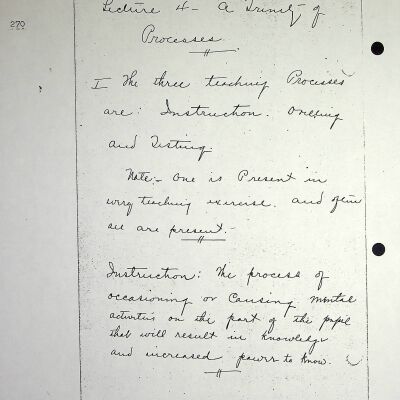 Lecture 4 - A Trinity of
270
Processes.
I The three teaching Processes
are: Instruction. Drilling
and Testing.
Note:- One is Present in
every teaching exercise. and often
all are present.-
Instruction: The process of
occasioning or Causing mental
activities on the part of the pupil
that will result in knowledge
and increased power to know.